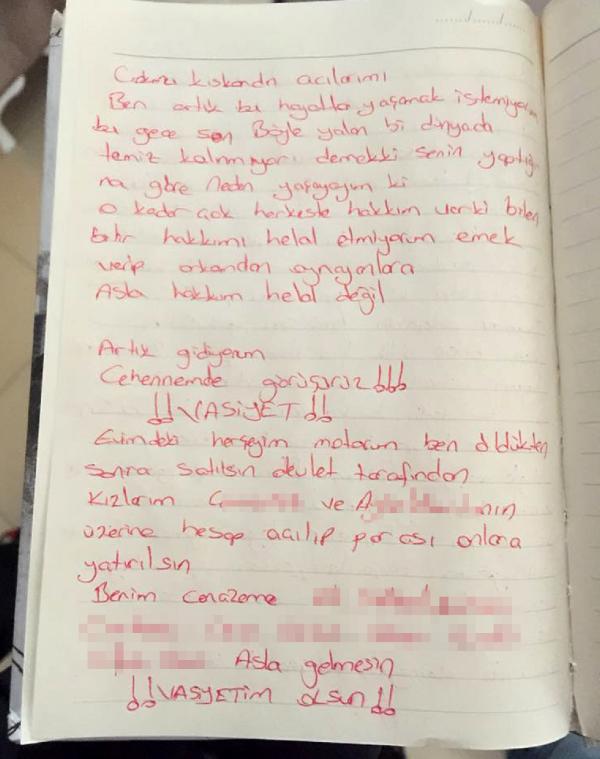 kıskandır acılarımı
Ben artık bu hayatta yaşamak istemiyorum
bu gece son Böyle yalan bi dünyada
temiz kalınmıyor demekki senin yaptığı
na göre Neden yaşayayım ki
o kadar çok herkeste hakkım var ki bilen
bilir hakkımı helal etmiyorum emek
verip arkandan oynayanlara
Asla hakkım helal değil
Artık gidiyorum
Cehennemde görüşürüz !!!
!! VASİYET !!
Evimdeki herşeyim motorum ben öldükten
sonra satılsın devlet tarafından
Kızlarım ve nın
üzerine hesap açılıp parası onlara
yatırılsın
Benim cenazeme
Asla gelmesin
!! VASYETİM OLSUN !!